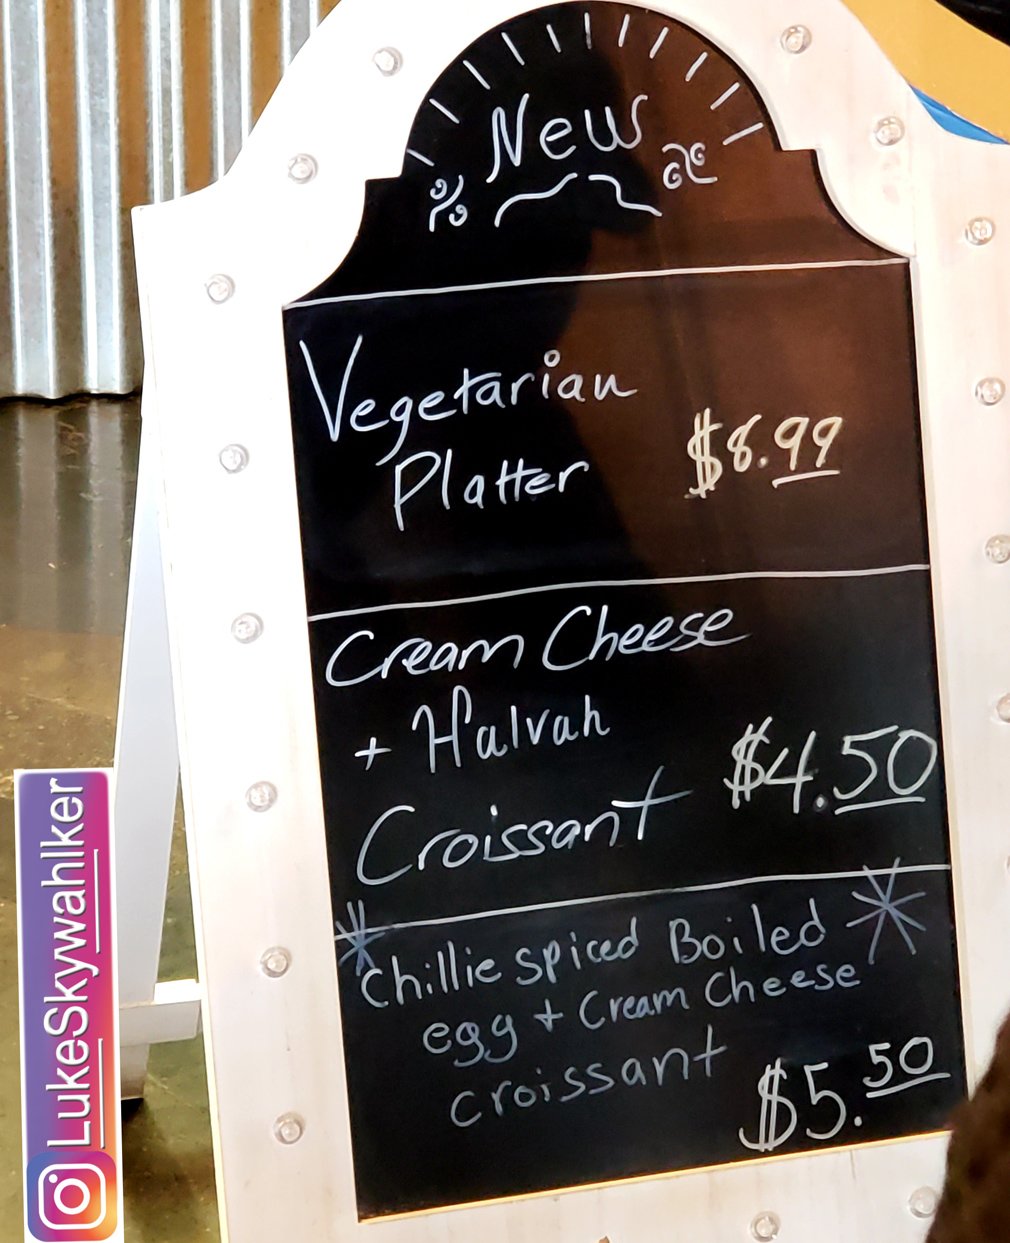 New
Vegetarian
Platter $8.99
Cream Cheese
+ Halvah
Croissant $4.50
Chillie spiced Boiled
egg + Cream Cheese
croissant
$5.50
LukeSkywahlker